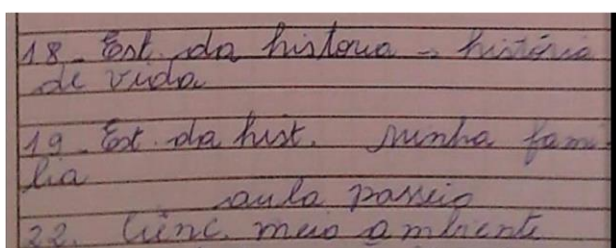 18 - Est. da historia - história
de vida
19 - Est. da hist. minha famí-
lia
aula passeio
22. Ciênc. meio ambiente